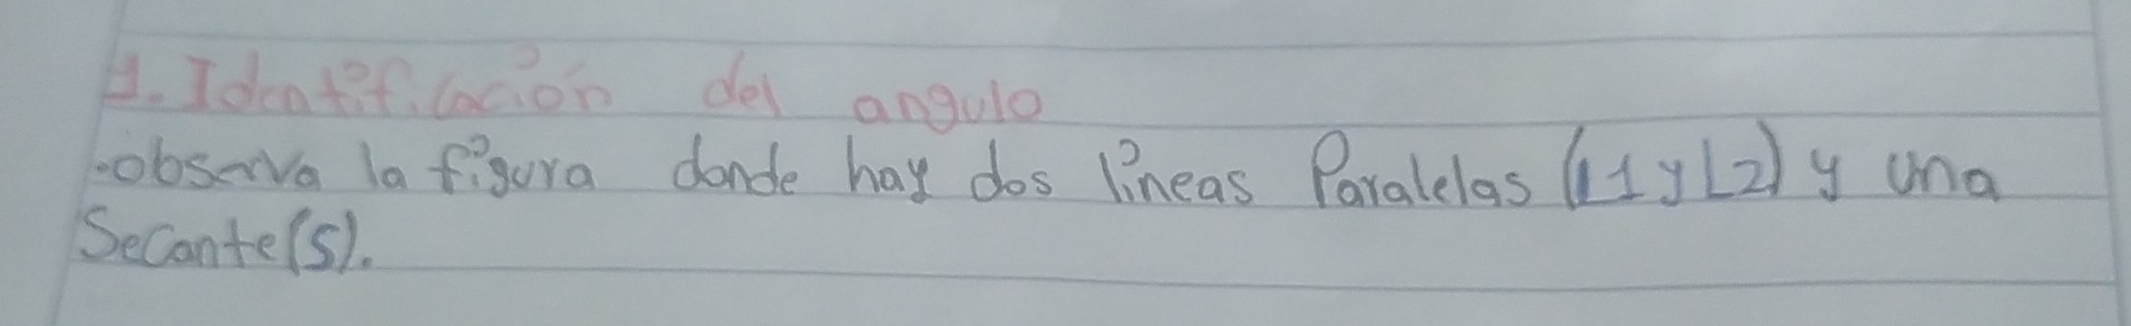 1. Identificación del angulo
.observa la figura donde hay dos líneas Paralelas (L1 y L2) y una
Secante(s).